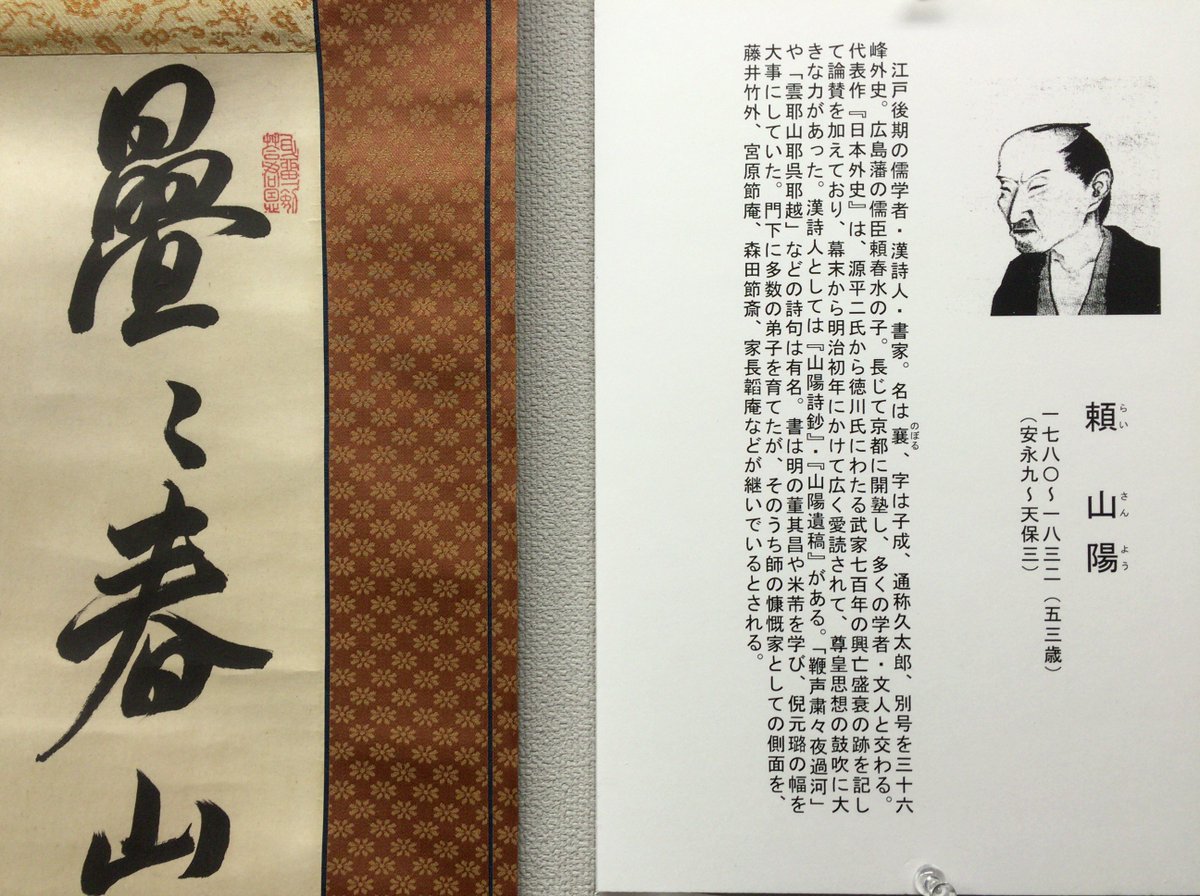 らい さん よう
頼山陽
一七八〇～一八三二（五三歳）
（安永九～天保三）
のぼる
江戸後期の儒学者・漢詩人・書家。名は襄、字は子成、通称久太郎、別号を三十六
峰外史。広島藩の儒臣頼春水の子。長じて京都に開塾し、多くの学者・文人と交わる。
代表作『日本外史』は、源平二氏から徳川氏にわたる武家七百年の興亡盛衰の跡を記し
て論賛を加えており、幕末から明治初年にかけて広く愛読されて、尊皇思想の鼓吹に大
きな力があった。漢詩人としては『山陽詩鈔』・『山陽遺稿』がある。「鞭声粛々夜過河」
や「雲耶山耶呉耶越」などの詩句は有名。書は明の董其昌や米芾を学び、倪元璐の幅を
大事にしていた。門下に多数の弟子を育てたが、そのうち師の慷慨家としての側面を、
藤井竹外、宮原節庵、森田節斎、家長韜庵などが継いでいるとされる。
疊〻春山